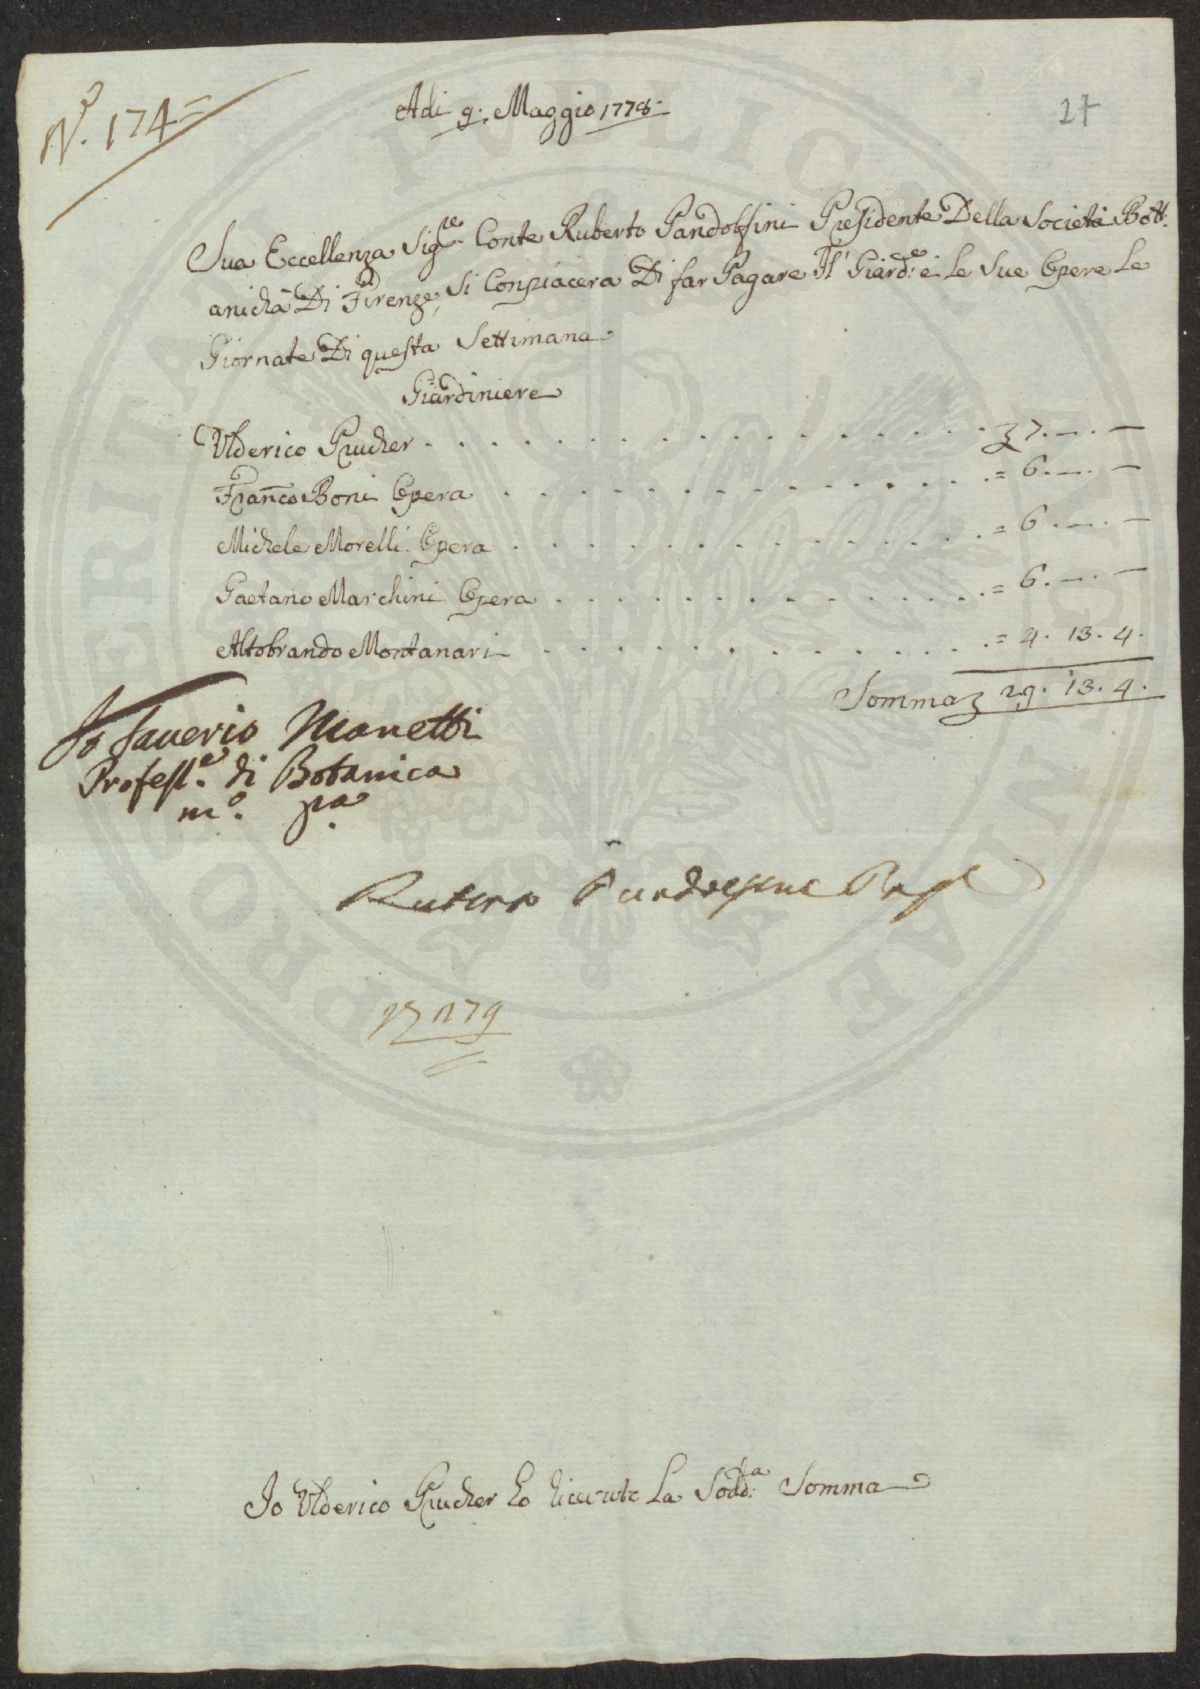 N.º 174=
Adi 9. Maggio 1778.
27
Sua Eccellenza Sig.re Conte Ruberto Pandolfini Presidente Della Società Bott:
anicha Di Firenze, Si Conpiacera Di far Pagare Il' Giard.e e le Sue Opere Le
Giornate Di questa Settimana
Giardiniere
Ulderico Prucher . . . . . . . . . . . . . . . . 7. —. —
Franco Boni Opera . . . . . . . . . . . . . . = 6. —. —
Michele Morelli Opera . . . . . . . . . . . . . = 6. —. —
Gaetano Marchini Opera . . . . . . . . . . . . . = 6. —. —
Altobrando Montanari . . . . . . . . . . . . = 4. 13. 4.
Somma 29. 13. 4.
Io Saverio Manetti
Profess.e di Botanica
m.o p.a
Ruberto Pandolfini
179
Io Ulderico Prucher ho ricevuto La Sodd.a Somma
PROSPERITATI PUBLICAE AUGENDAE